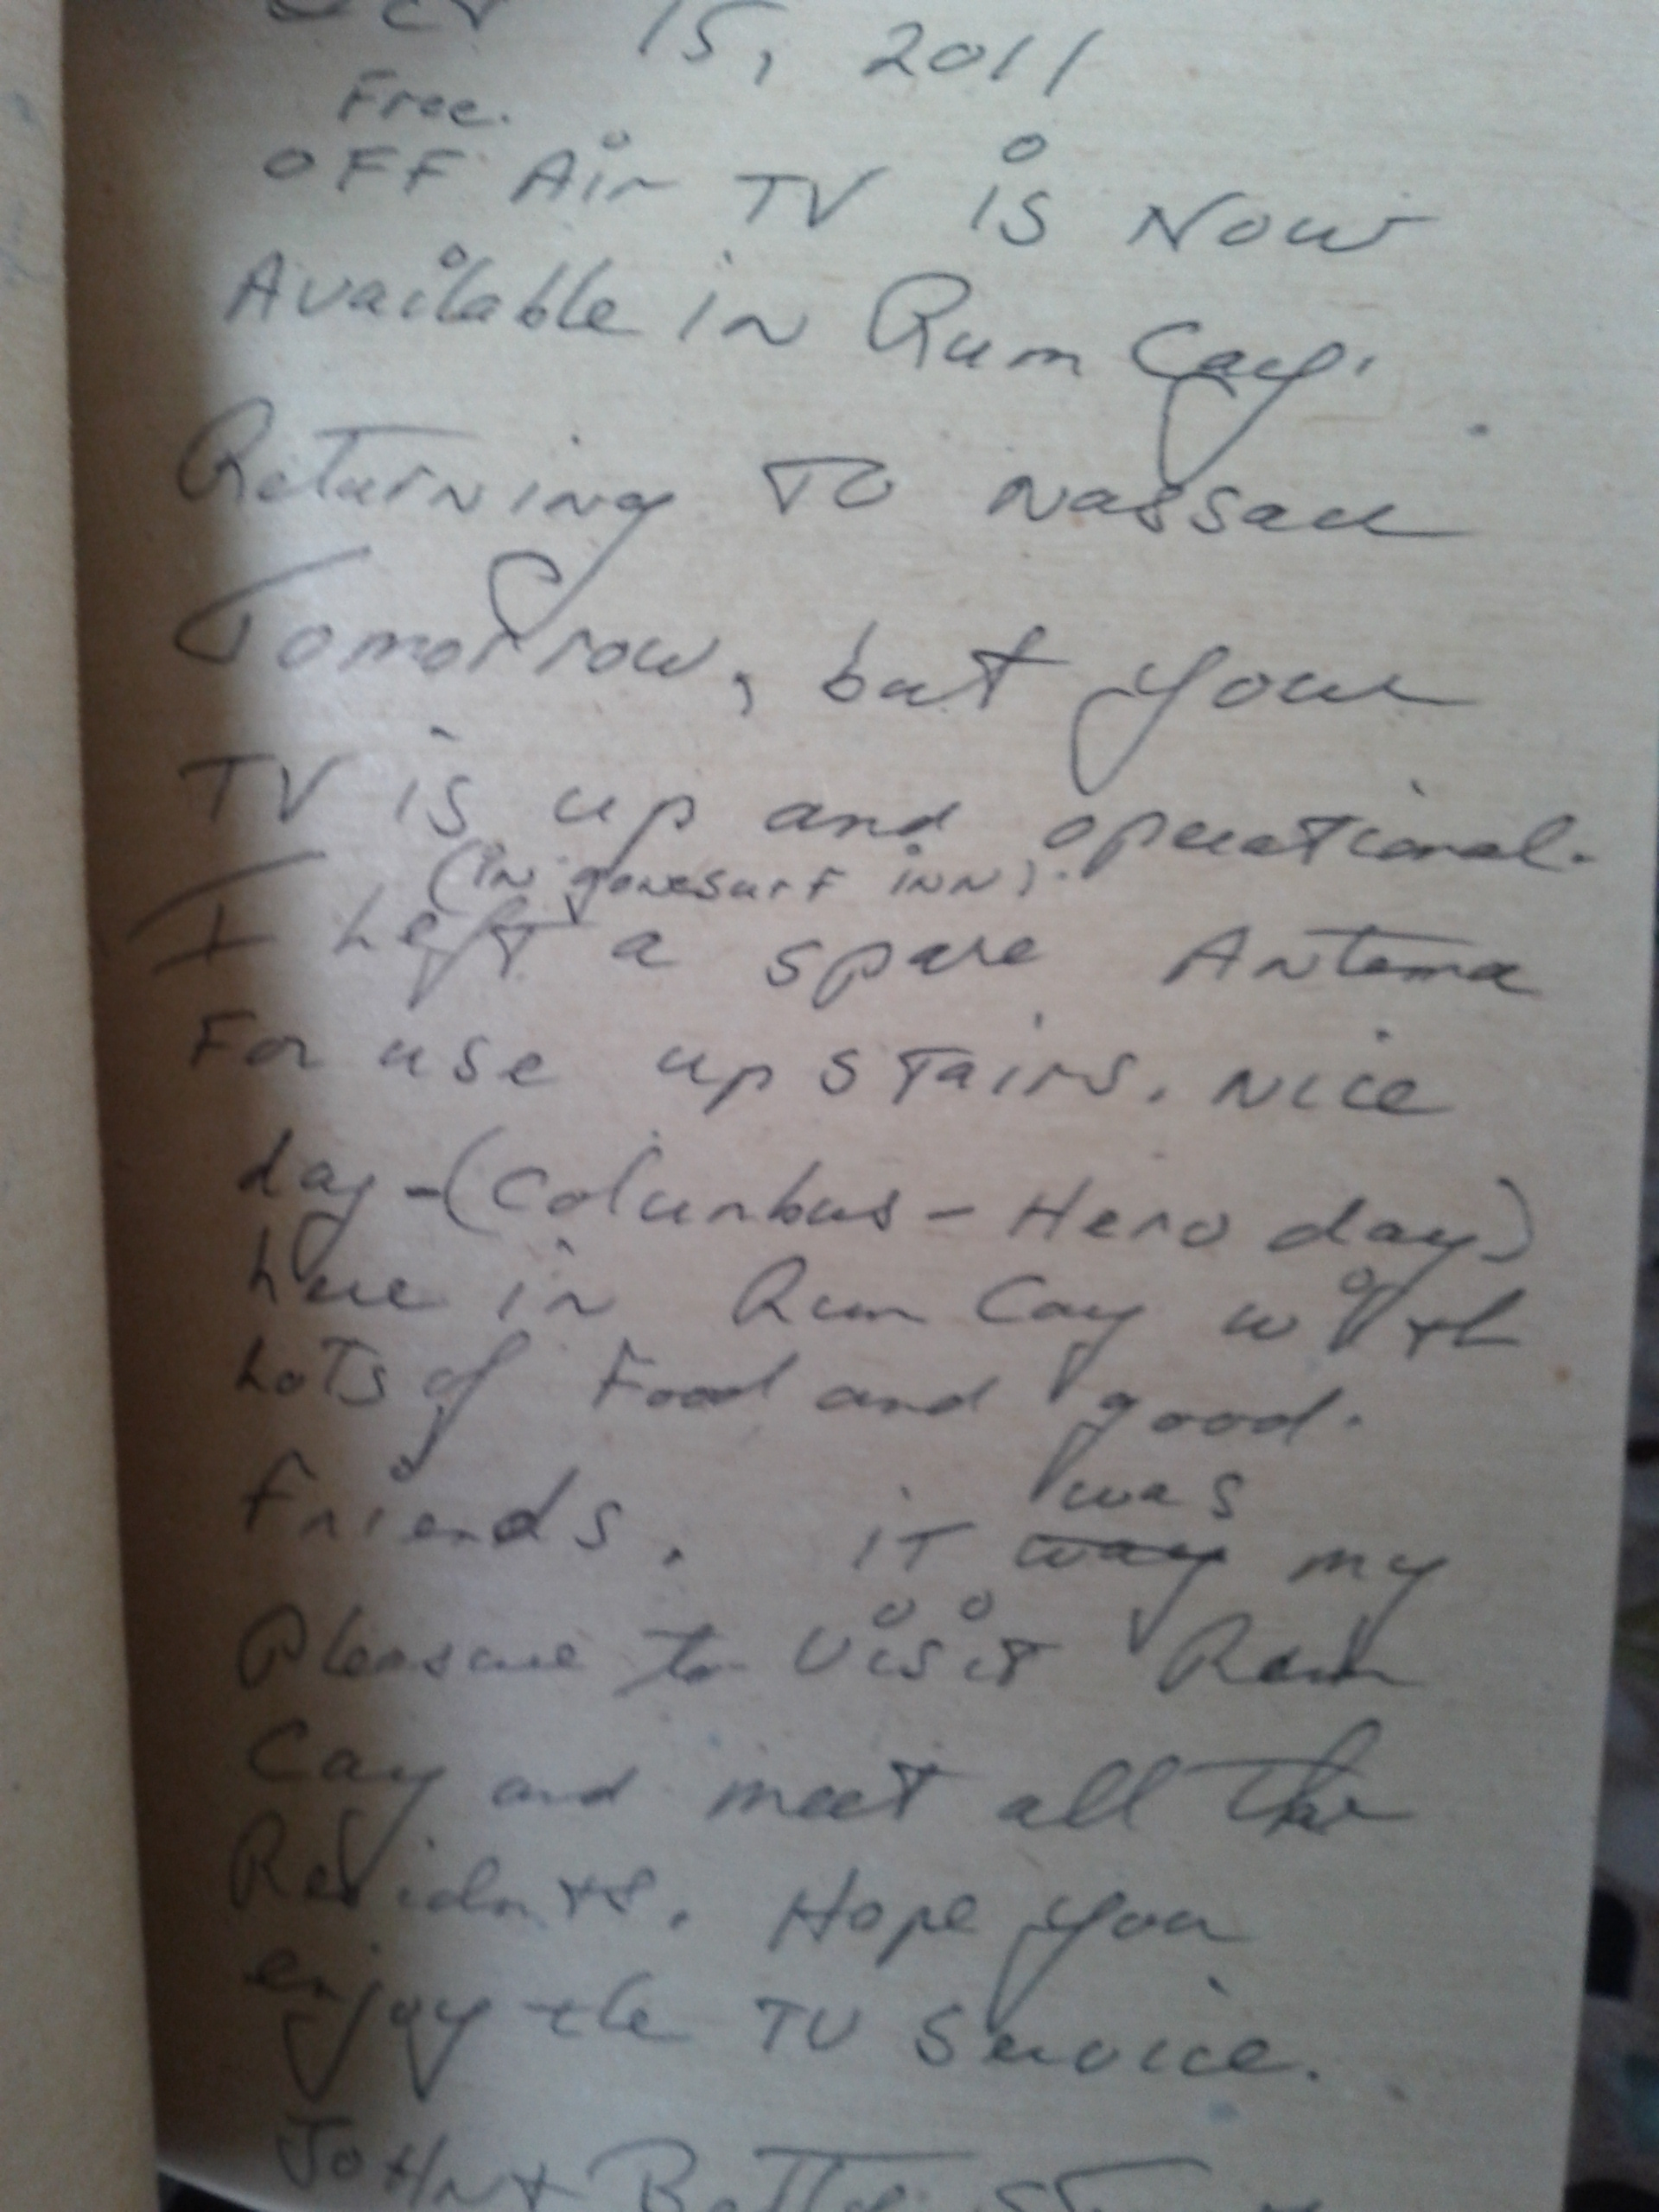 Oct 15, 2011
Free.
OFF Air TV is Now
Available in Rum Cay.
Returning To Nassau
Tomorrow, but your
TV is up and operational.
(in gonesurf inn).
I Left a spare Antenna
For use upstairs. Nice
day - (Columbus - Hero day)
here in Rum Cay with
Lots of Food and good.
Friends. iT was way my
Pleasure to visit Rum
Cay and meet all the
Residents. Hope you
enjoy the TV Service.
JOHN +